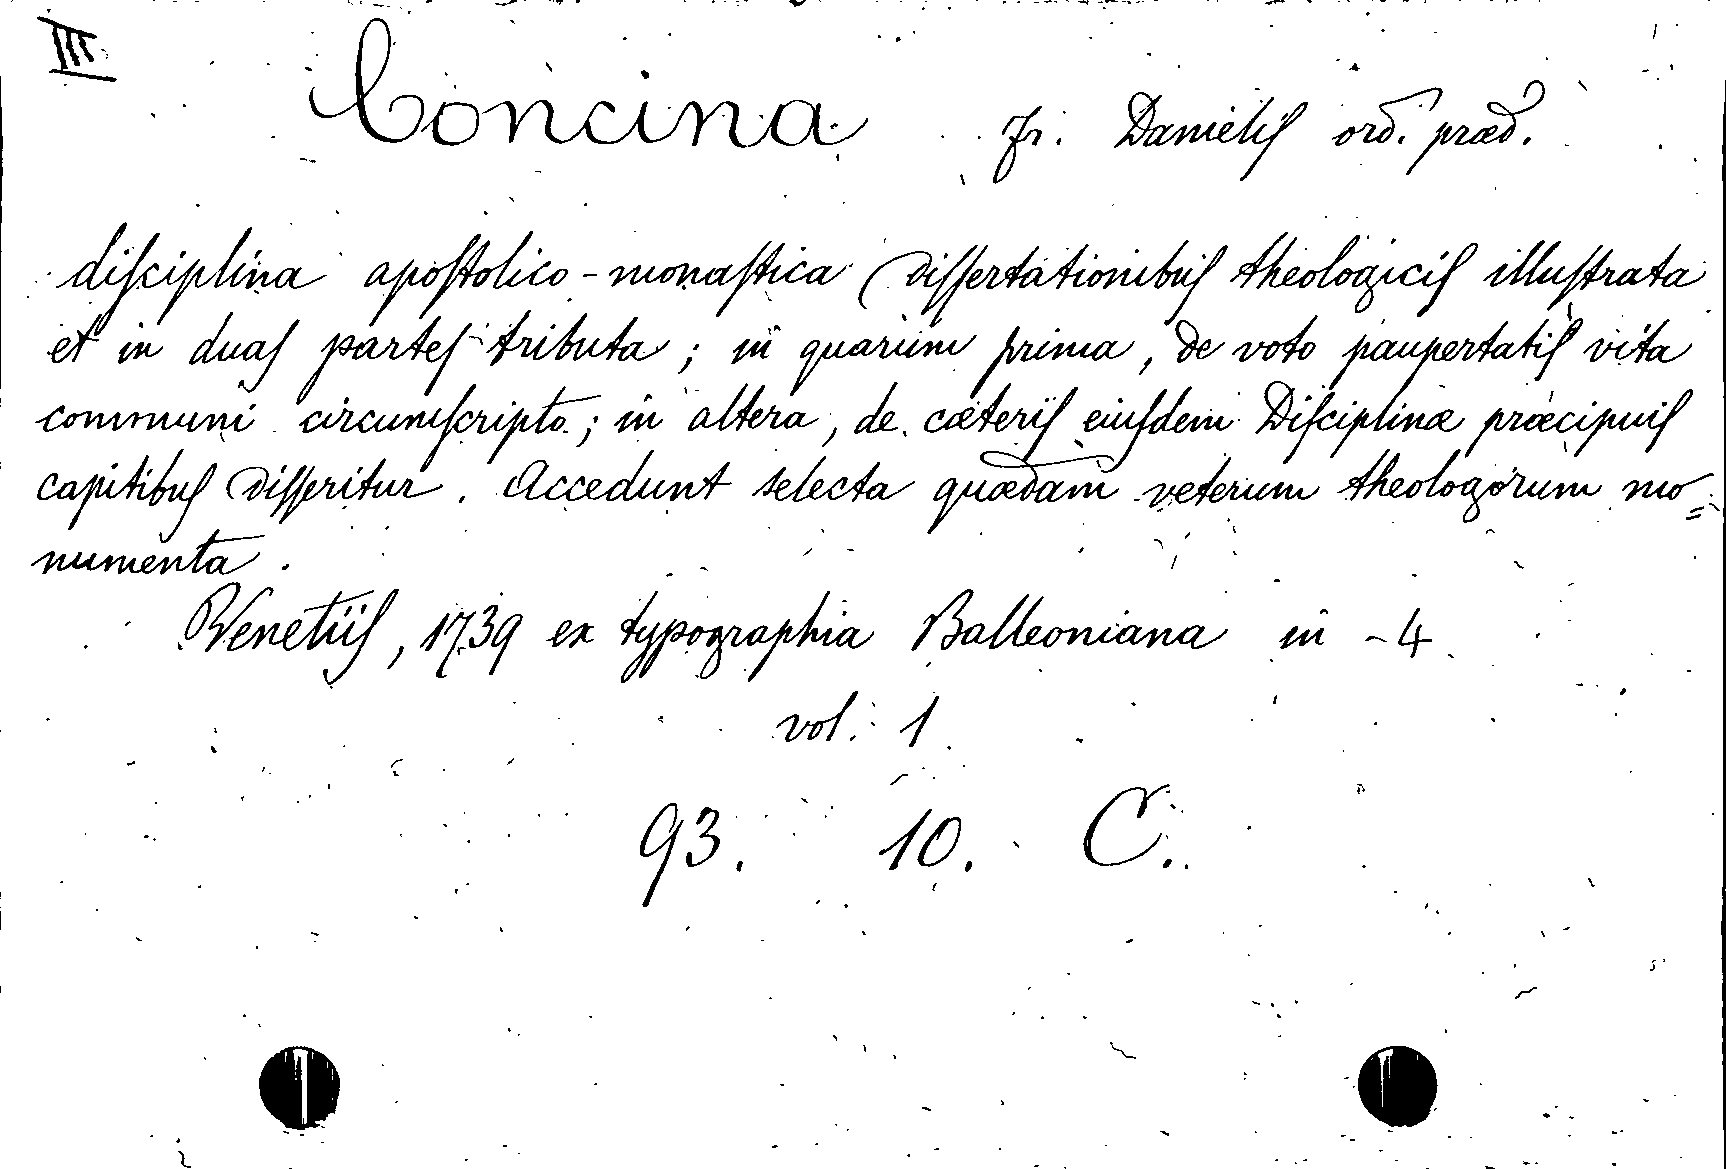 III
Concina Fr. Danielis ord. præd.
disciplina apostolico-monastica dissertationibus theologicis illustrata
et in duas partes tributa; in quarum prima, de voto paupertatis vita
communi circumscripto; in altera, de cæteris eiusdem Disciplinæ præcipuis
capitibus disseritur. Accedunt selecta quædam veterum theologorum mo=
numenta.
Venetiis, 1739 ex typographia Balleoniana in -4
vol. 1
93. 10. C.